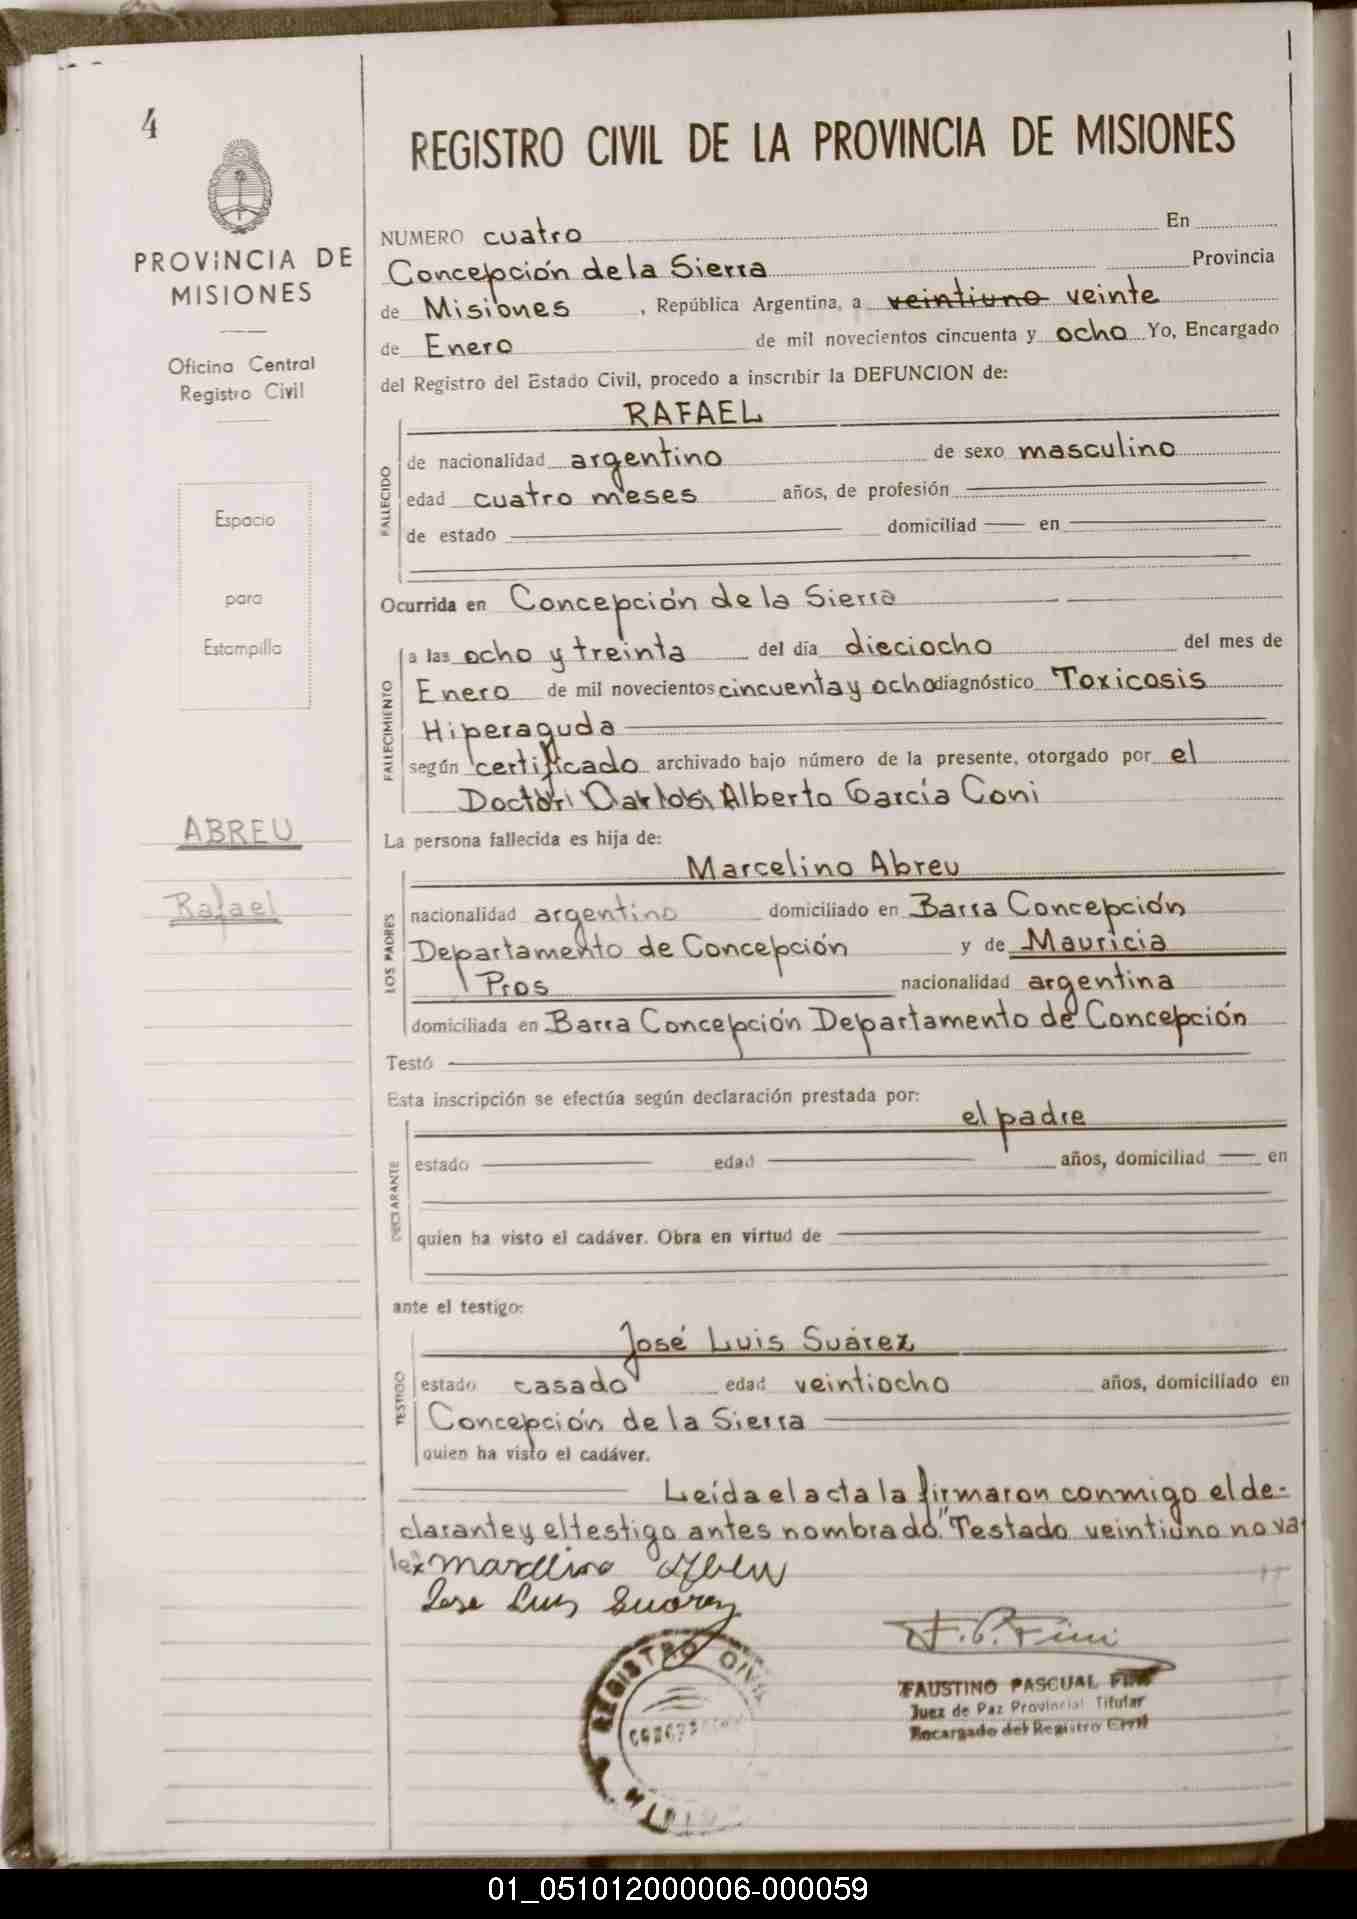 4
PROVINCIA DE
MISIONES
Oficina Central
Registro Civil
Espacio
para
Estampilla
ABREU
Rafael
REGISTRO CIVIL DE LA PROVINCIA DE MISIONES
NUMERO cuatro En
Concepción de la Sierra Provincia
de Misiones , República Argentina, a veintiuno veinte
de Enero de mil novecientos cincuenta y ocho Yo, Encargado
del Registro del Estado Civil, procedo a inscribir la DEFUNCION de:
RAFAEL
FALLECIDO
de nacionalidad argentino de sexo masculino
edad cuatro meses años, de profesión
de estado domiciliad en
Ocurrida en Concepción de la Sierra
FALLECIMIENTO
a las ocho y treinta del día dieciocho del mes de
Enero de mil novecientos cincuenta y ocho diagnóstico Toxicosis
Hiperaguda
según certificado archivado bajo número de la presente, otorgado por el
Doctor Carlos Alberto García Coni
La persona fallecida es hija de:
Marcelino Abreu
LOS PADRES
nacionalidad argentino domiciliado en Barra Concepción
Departamento de Concepción y de Mauricia
Pros nacionalidad argentina
domiciliada en Barra Concepción Departamento de Concepción
Testó
Esta inscripción se efectúa según declaración prestada por:
el padre
DECLARANTE
estado edad años, domiciliad en
quien ha visto el cadáver. Obra en virtud de
ante el testigo:
José Luis Suárez
TESTIGO
estado casado edad veintiocho años, domiciliado en
Concepción de la Sierra
quien ha visto el cadáver.
Leída el acta la firmaron conmigo el de-
clarante y el testigo antes nombrado." Testado veintiuno no va
le:
Marcelino Abreu
Jose Luis Suarez
F. P. Fini
REGISTRO CIVIL
FAUSTINO PASCUAL FINI
Juez de Paz Provincial Titular
Encargado del Registro Civil
01_051012000006-000059